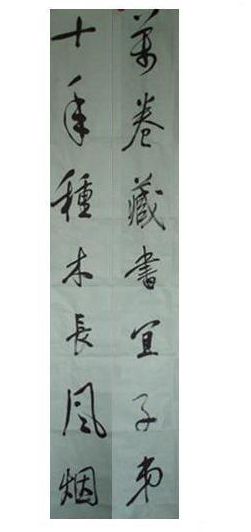 萬卷藏書宜子弟
十年種木長風烟